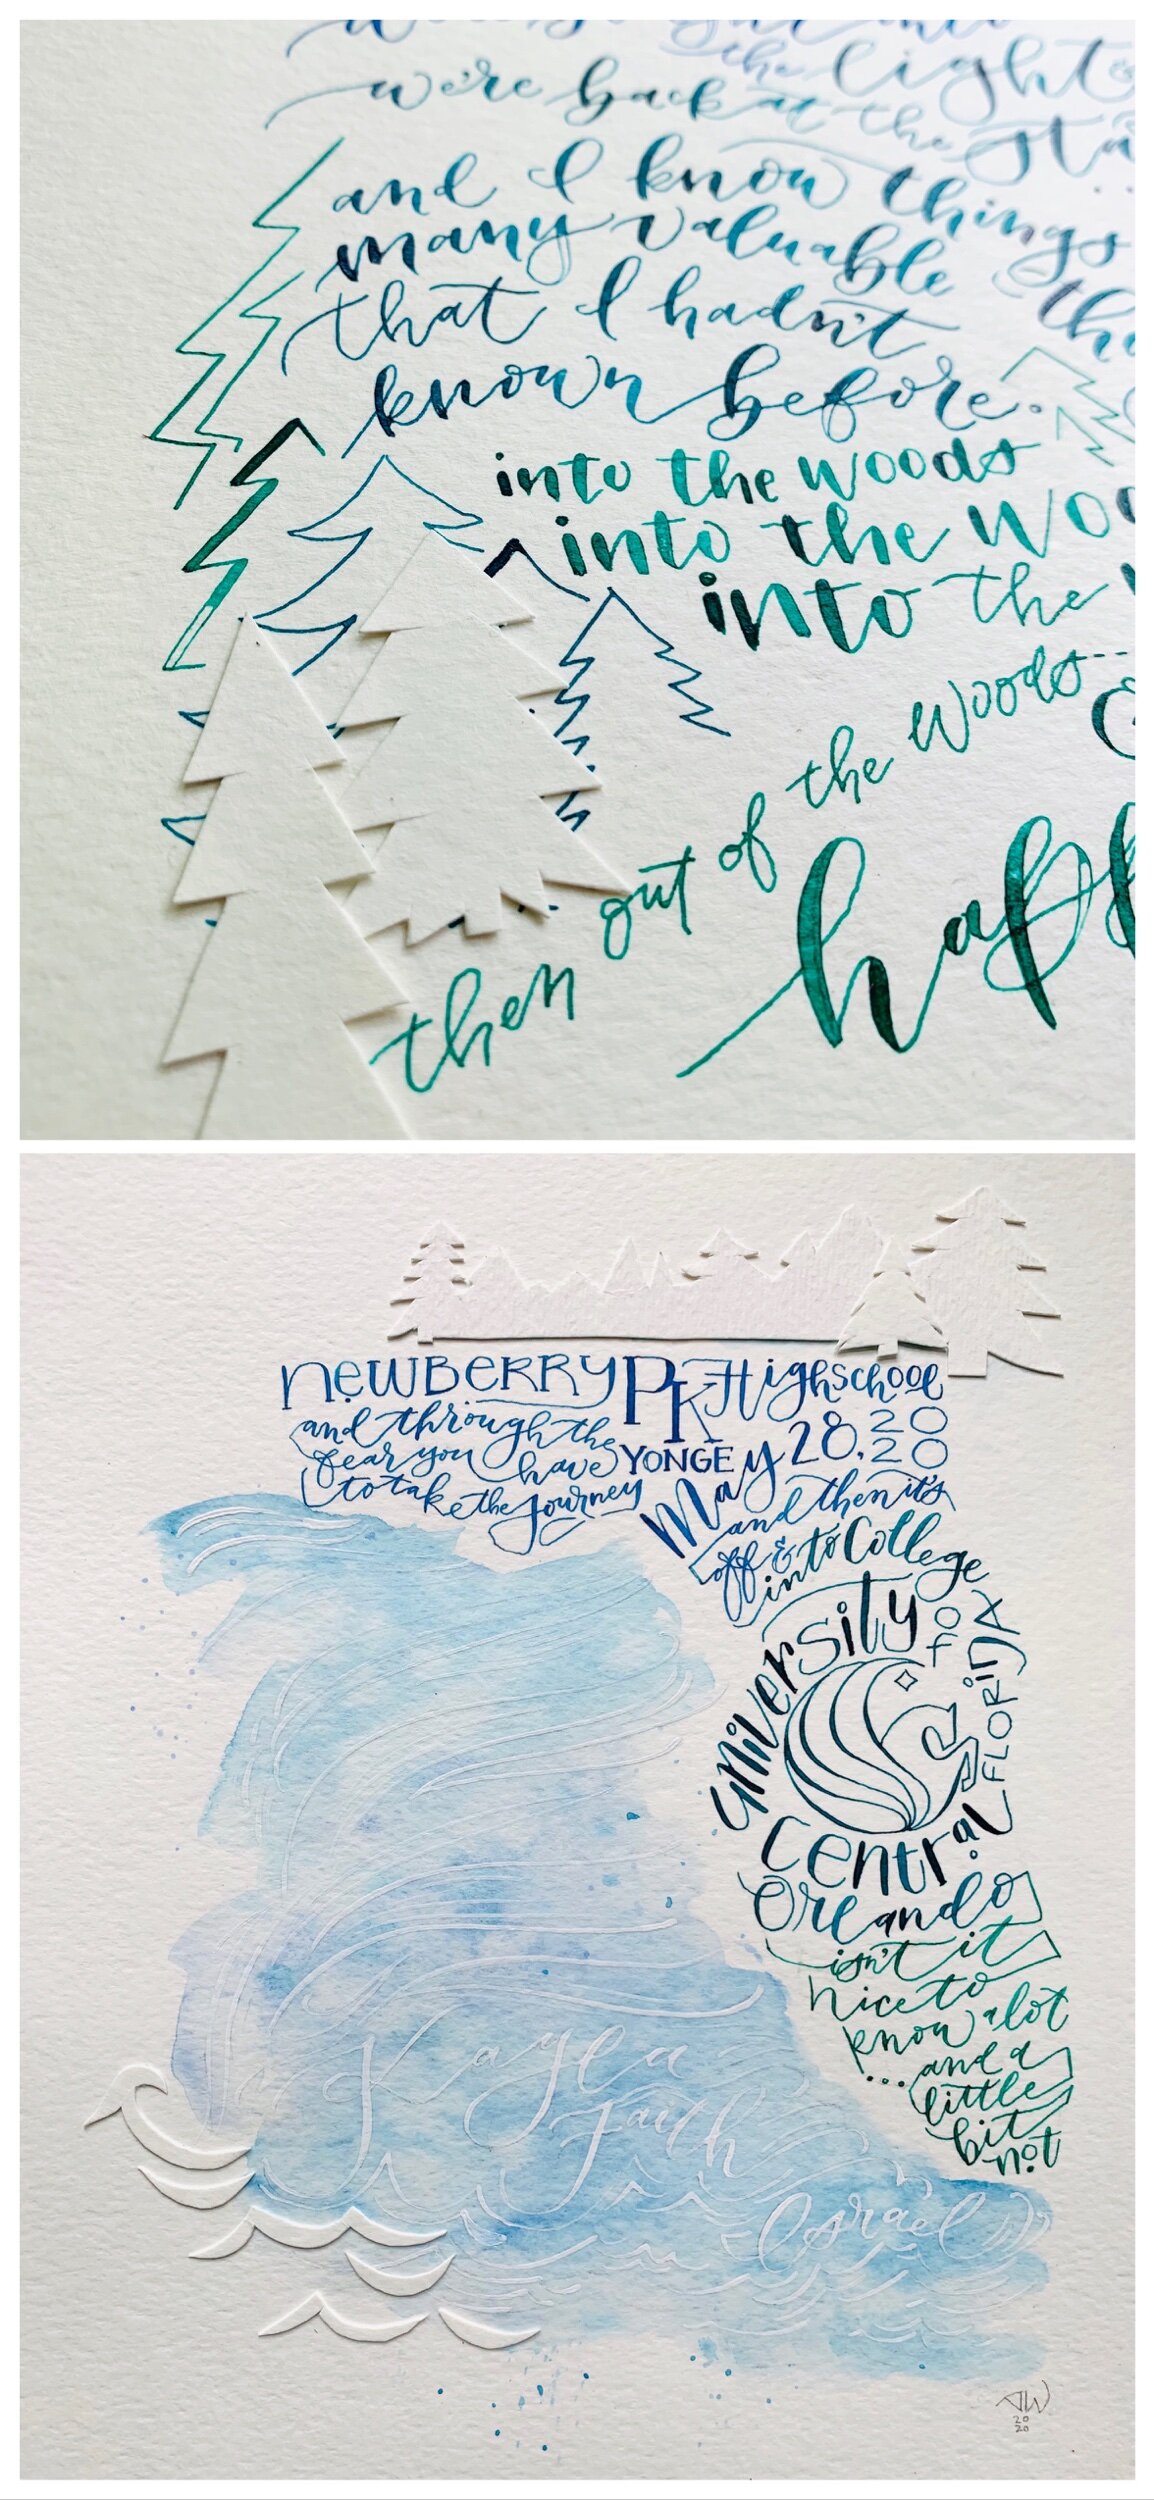 the light
we're back at the sta
and I know things
many valuable
that I hadn't tho
known before.
into the woods
into the woo
into the
then out of the woods...
happ
NEWBERRY PK Highschool
YONGE
May 28.2020
and through the
fear you have
to take the journey
and then it's
off &
into College
University of
FLORIDA
Central
Orlando
isn't it
nice to
know a lot
...and a
little
bit
not
Kayla
Faith
Israel
JW
20
20